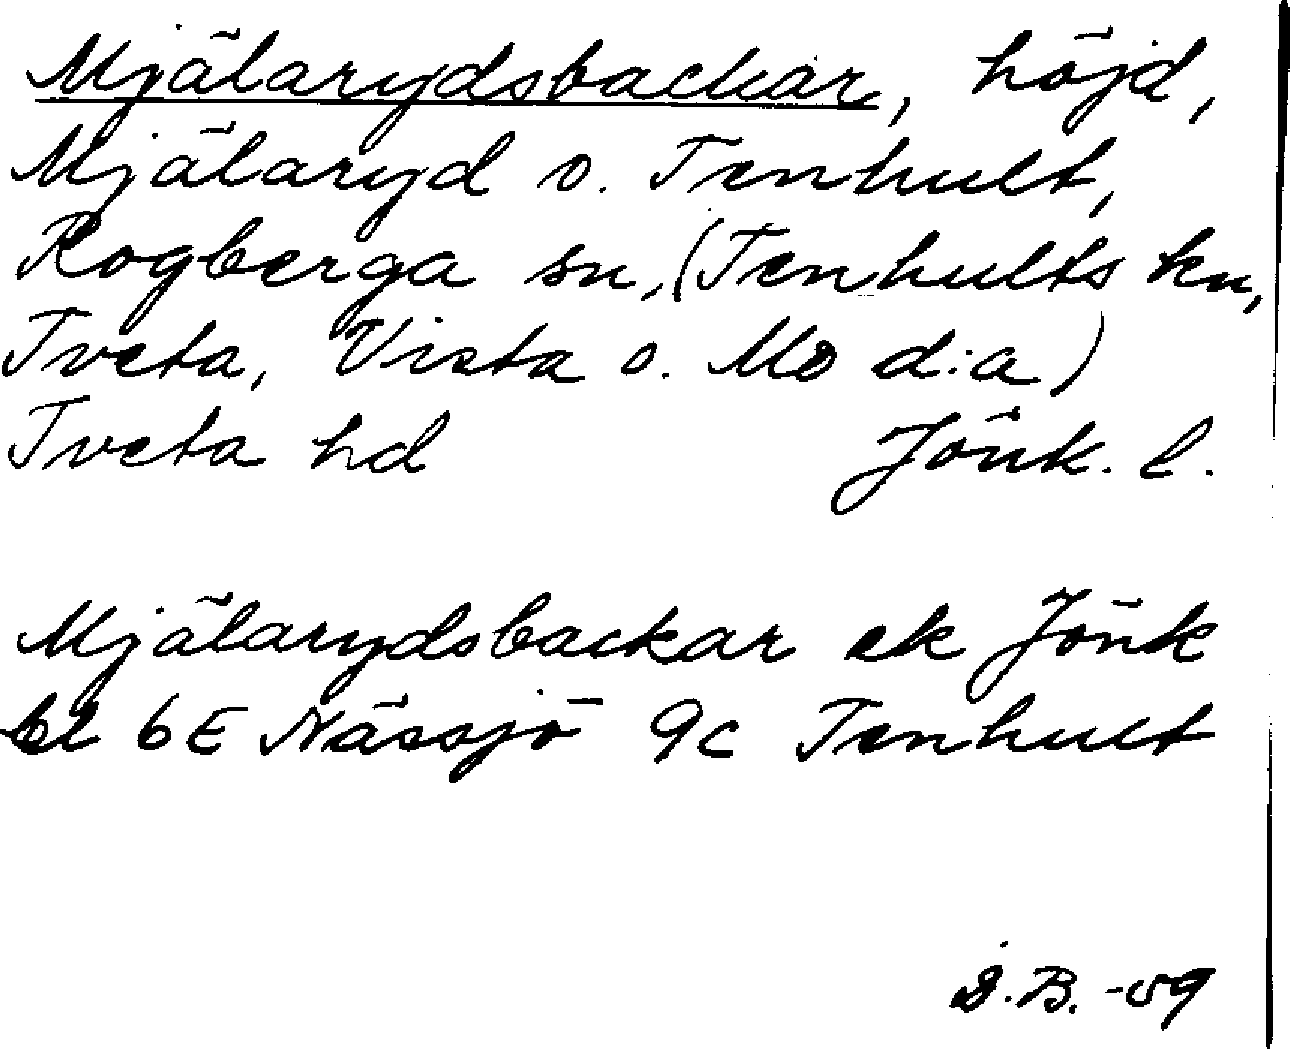 Mjälarydsbackar, höjd,
Mjälaryd o. Tenhult,
Rogberga sn, (Tenhults kn,
Tveta, Vista o. Mo d:a)
Tveta hd Jönk. l.
Mjälarydsbackar ek Jönk
bl 6E Nässjö 9c Tenhult
S.B. -59